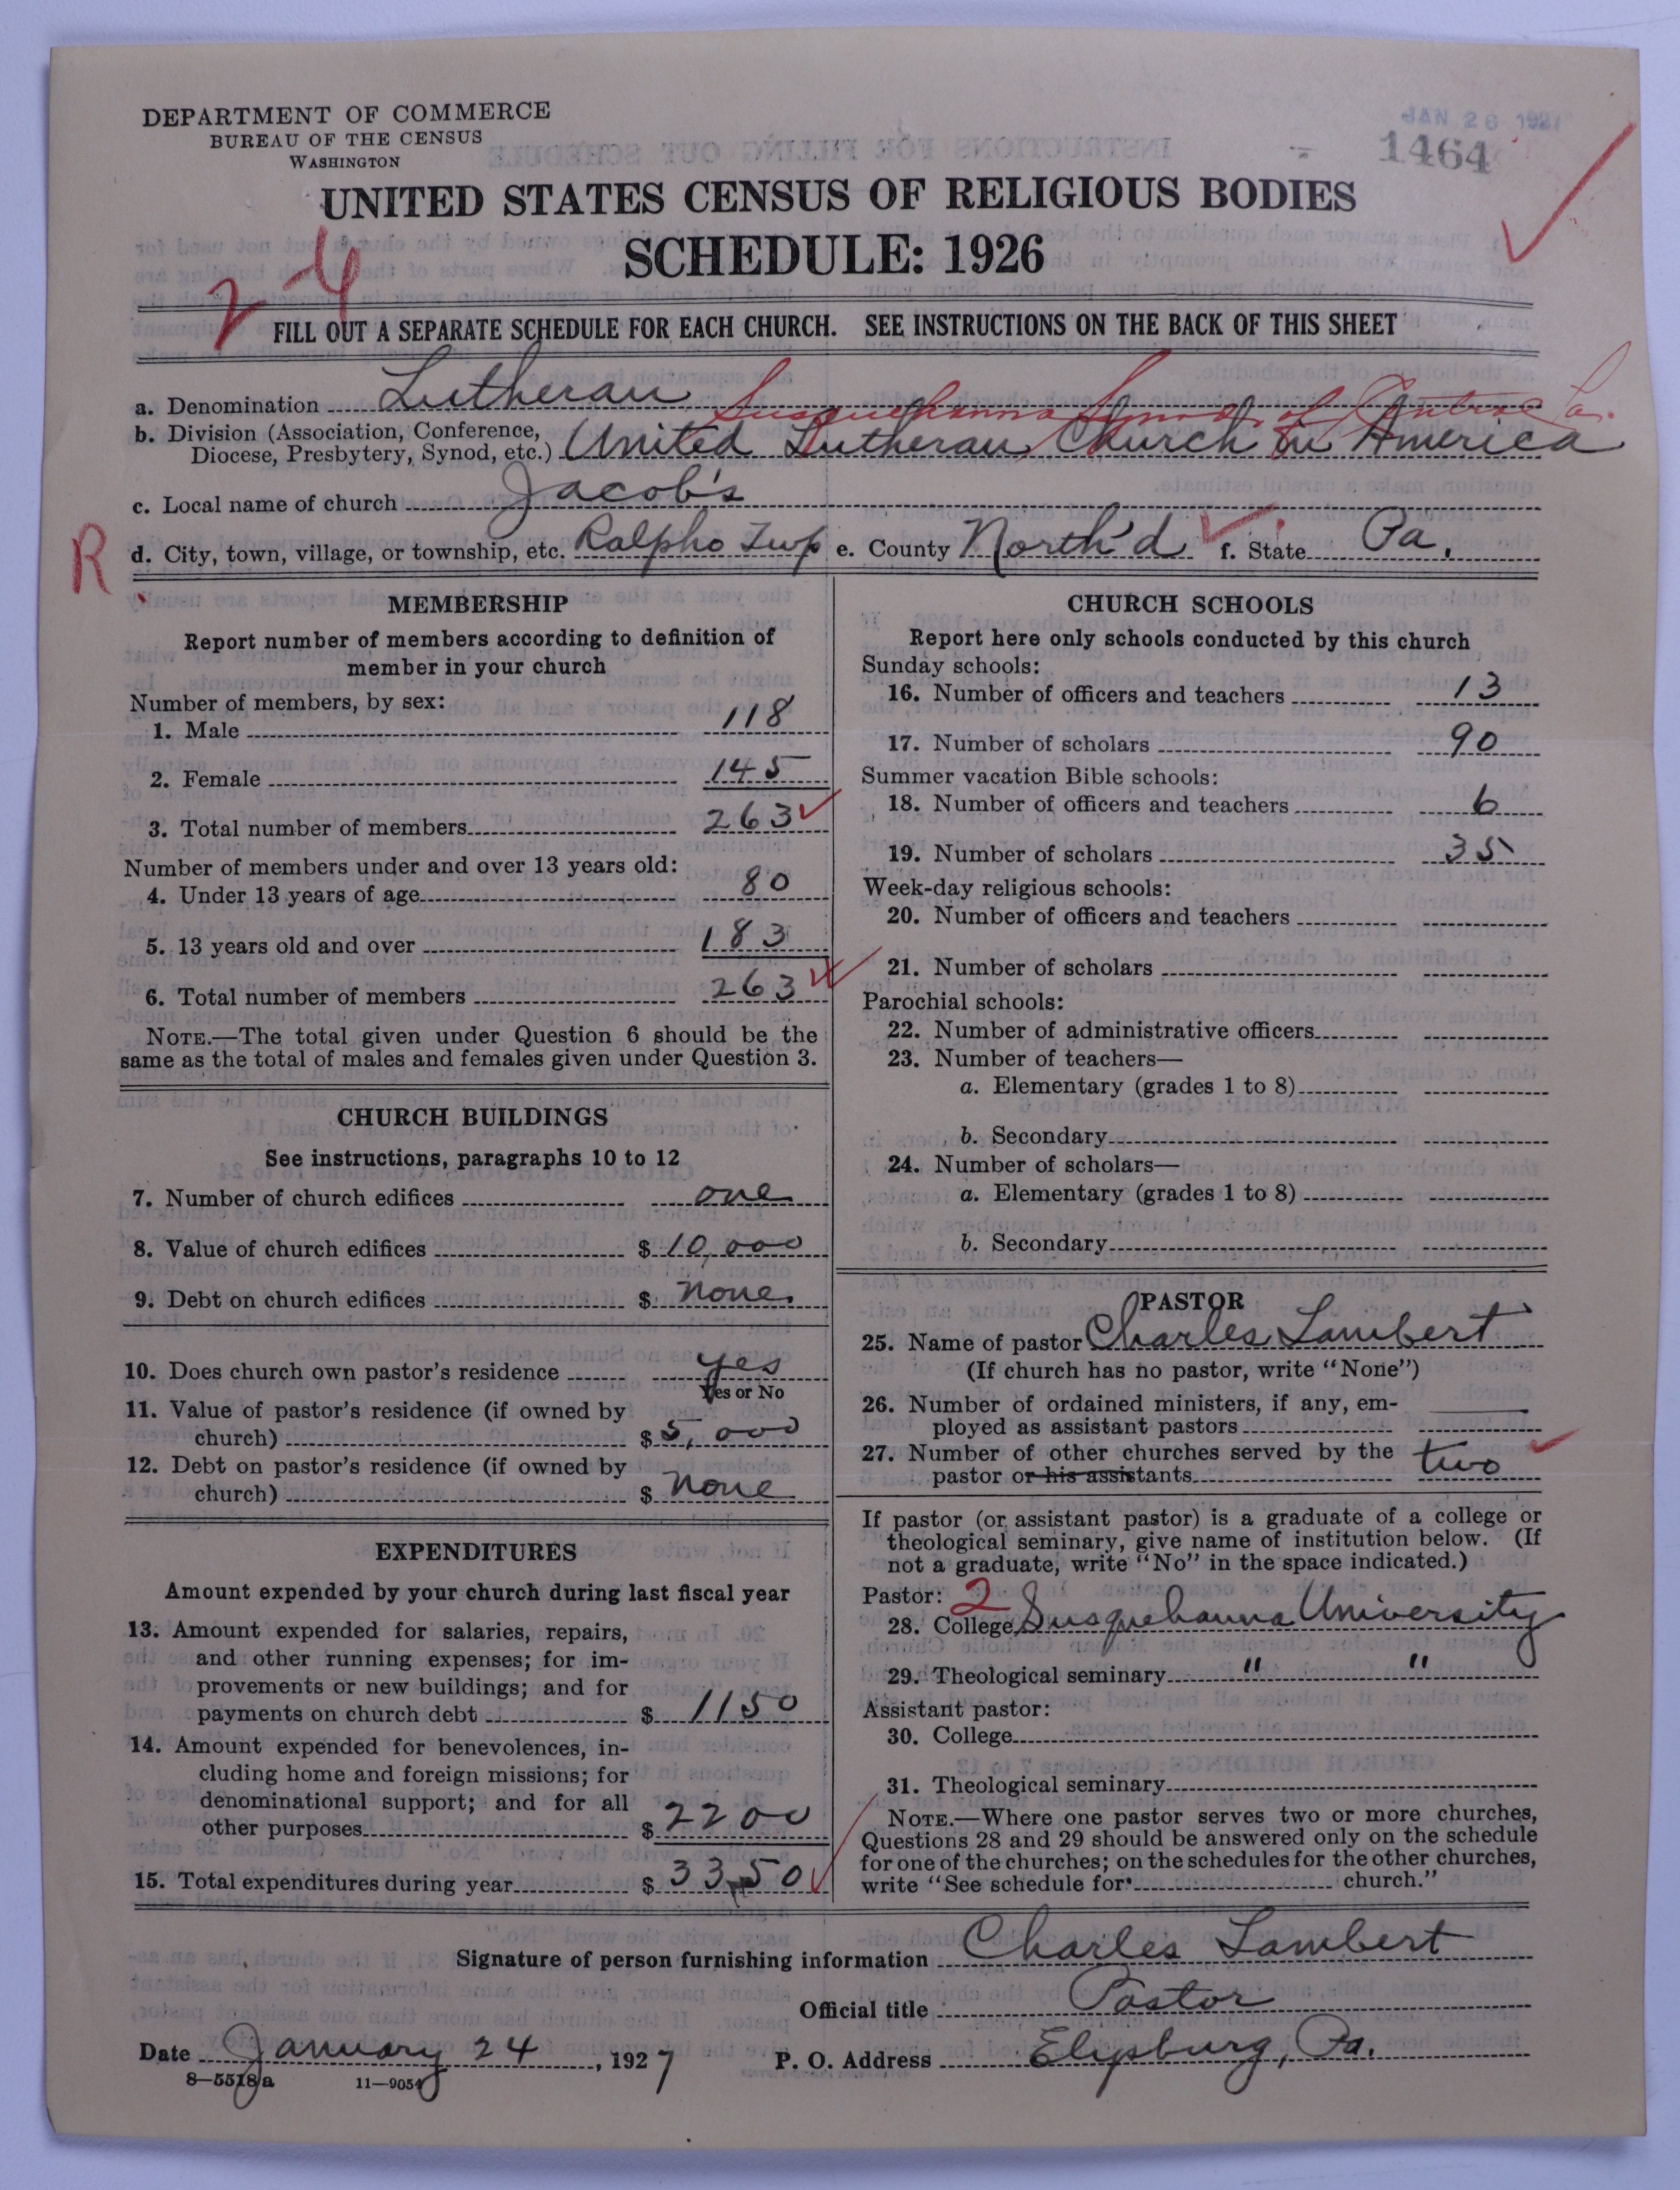 DEPARTMENT OF COMMERCE
BUREAU OF THE CENSUS
WASHINGTON
JAN 26 1927
1464
UNITED STATES CENSUS OF RELIGIOUS BODIES
SCHEDULE: 1926
2 4
FILL OUT A SEPARATE SCHEDULE FOR EACH CHURCH. SEE INSTRUCTIONS ON THE BACK OF THIS SHEET
a. Denomination Lutheran Susquehanna Synod of Central Pa.
b. Division (Association, Conference,
Diocese, Presbytery, Synod, etc.) United Lutheran Church in America
c. Local name of church Jacob's
R d. City, town, village, or township, etc. Ralpho Twp e. County North'd f. State Pa.
MEMBERSHIP
Report number of members according to definition of
member in your church
Number of members, by sex:
1. Male 118
2. Female 145
3. Total number of members 263
Number of members under and over 13 years old:
4. Under 13 years of age 80
5. 13 years old and over 183
6. Total number of members 263
NOTE.—The total given under Question 6 should be the
same as the total of males and females given under Question 3.
CHURCH BUILDINGS
See instructions, paragraphs 10 to 12
7. Number of church edifices one
8. Value of church edifices $ 10,000
9. Debt on church edifices $ none.
10. Does church own pastor's residence yes
Yes or No
11. Value of pastor's residence (if owned by
church) $ 5,000
12. Debt on pastor's residence (if owned by
church) $ none
EXPENDITURES
Amount expended by your church during last fiscal year
13. Amount expended for salaries, repairs,
and other running expenses; for im-
provements or new buildings; and for
payments on church debt $ 1150
14. Amount expended for benevolences, in-
cluding home and foreign missions; for
denominational support; and for all
other purposes $ 2200
15. Total expenditures during year $ 3350
CHURCH SCHOOLS
Report here only schools conducted by this church
Sunday schools:
16. Number of officers and teachers 13
17. Number of scholars 90
Summer vacation Bible schools:
18. Number of officers and teachers 6
19. Number of scholars 35
Week-day religious schools:
20. Number of officers and teachers
21. Number of scholars
Parochial schools:
22. Number of administrative officers
23. Number of teachers—
a. Elementary (grades 1 to 8)
b. Secondary
24. Number of scholars—
a. Elementary (grades 1 to 8)
b. Secondary
PASTOR
25. Name of pastor Charles Lambert
(If church has no pastor, write "None")
26. Number of ordained ministers, if any, em-
ployed as assistant pastors
27. Number of other churches served by the
pastor or his assistants two
If pastor (or assistant pastor) is a graduate of a college or
theological seminary, give name of institution below. (If
not a graduate, write "No" in the space indicated.)
Pastor: 2
28. College Susquehanna University
29. Theological seminary " "
Assistant pastor:
30. College
31. Theological seminary
NOTE.—Where one pastor serves two or more churches,
Questions 28 and 29 should be answered only on the schedule
for one of the churches; on the schedules for the other churches,
write "See schedule for church."
Signature of person furnishing information Charles Lambert
Official title Pastor
Date January 24, 1927 P. O. Address Elysburg, Pa.
8—5518a 11—9054